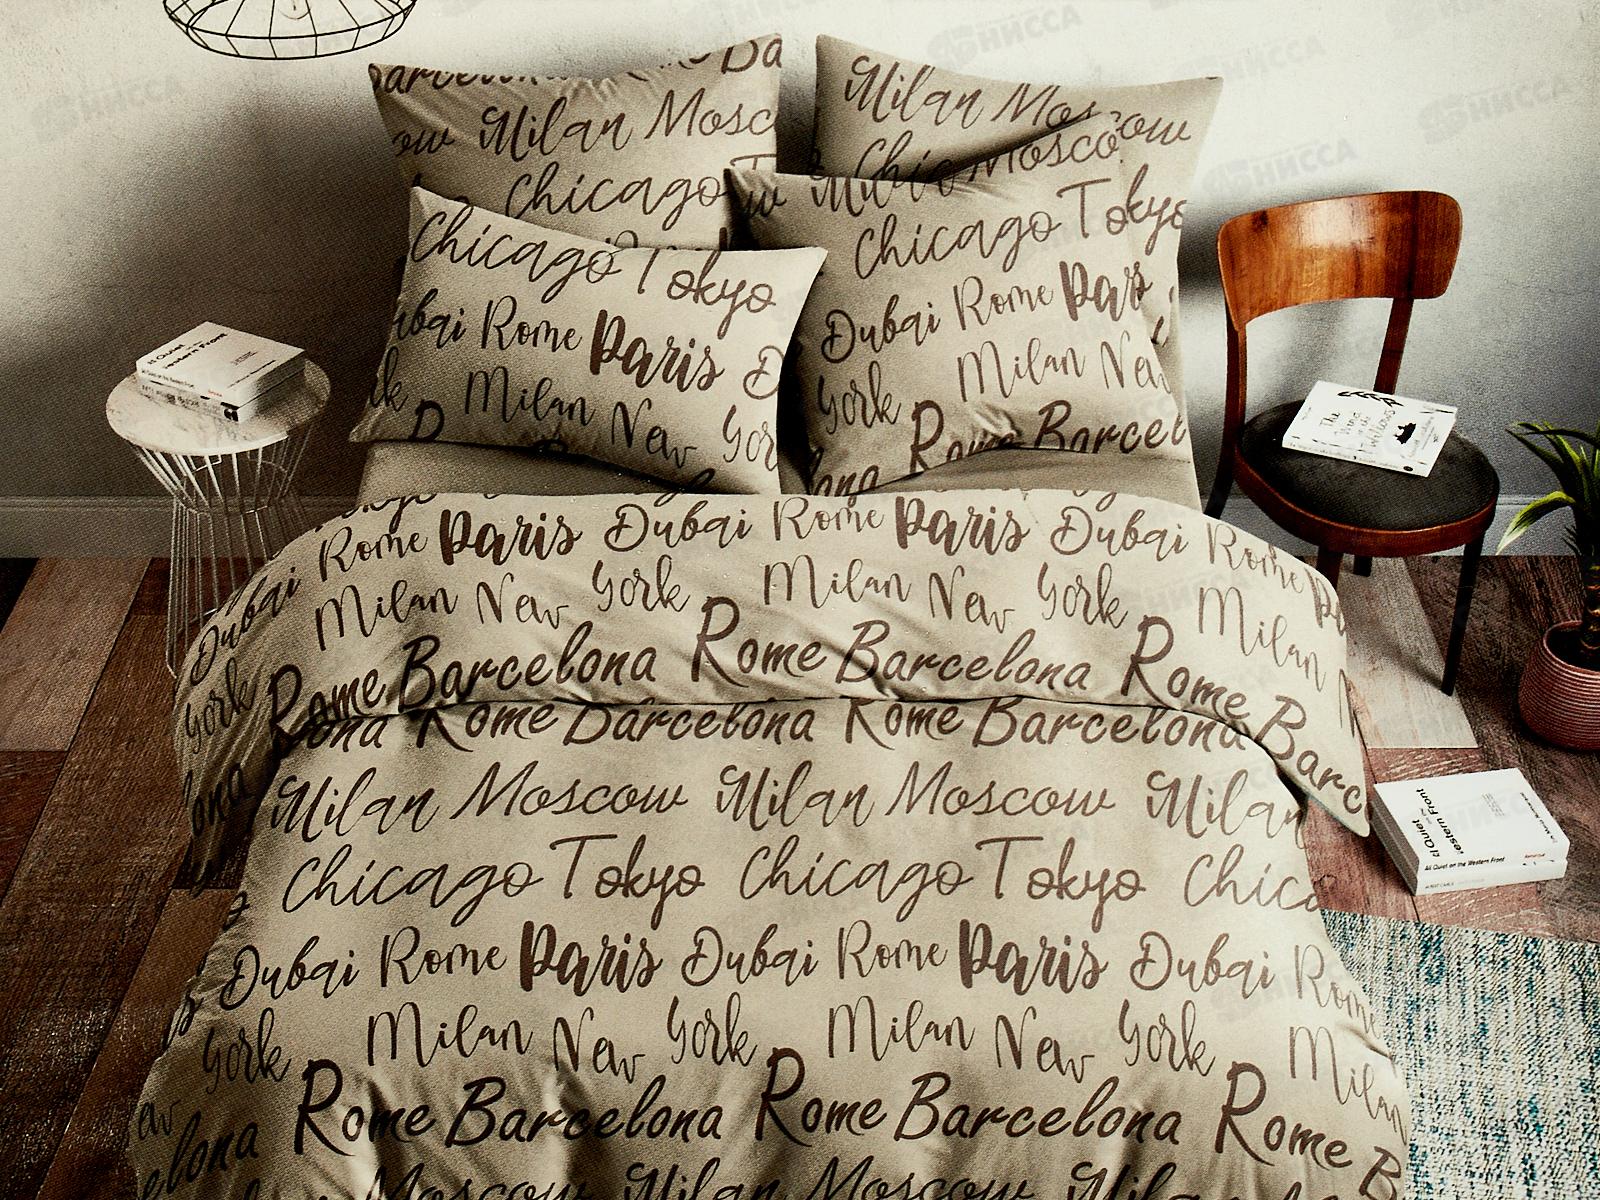 НИССА
НИССА
НИССА
НИССА
НИССА
Barcelona
Milan Moscow
Chicago
Milan Moscow
Chicago
Moscow
Milan
Chicago Tokyo
Dubai Rome Paris
Milan New York
Chicago Tokyo
Dubai Rome Paris
York Milan New
Rome Barcelona
Rome Paris Dubai Rome Paris Dubai Rome
Dubai Milan New York Milan New York Milan
York Rome Barcelona Rome Barcelona Rome Barc
ona Rome Barcelona Rome Barcelona
Milan Moscow Milan Moscow Milan
Chicago Tokyo Chicago Tokyo Chica
Dubai Rome Paris Dubai Rome Paris Dubai Rome
York Milan New York Milan New York Milan
elona Rome Barcelona Rome Barcelona Rome B
Moscow Milan Moscow Milan
ll Quiet
estern Front
All Quiet on the Western Front
The